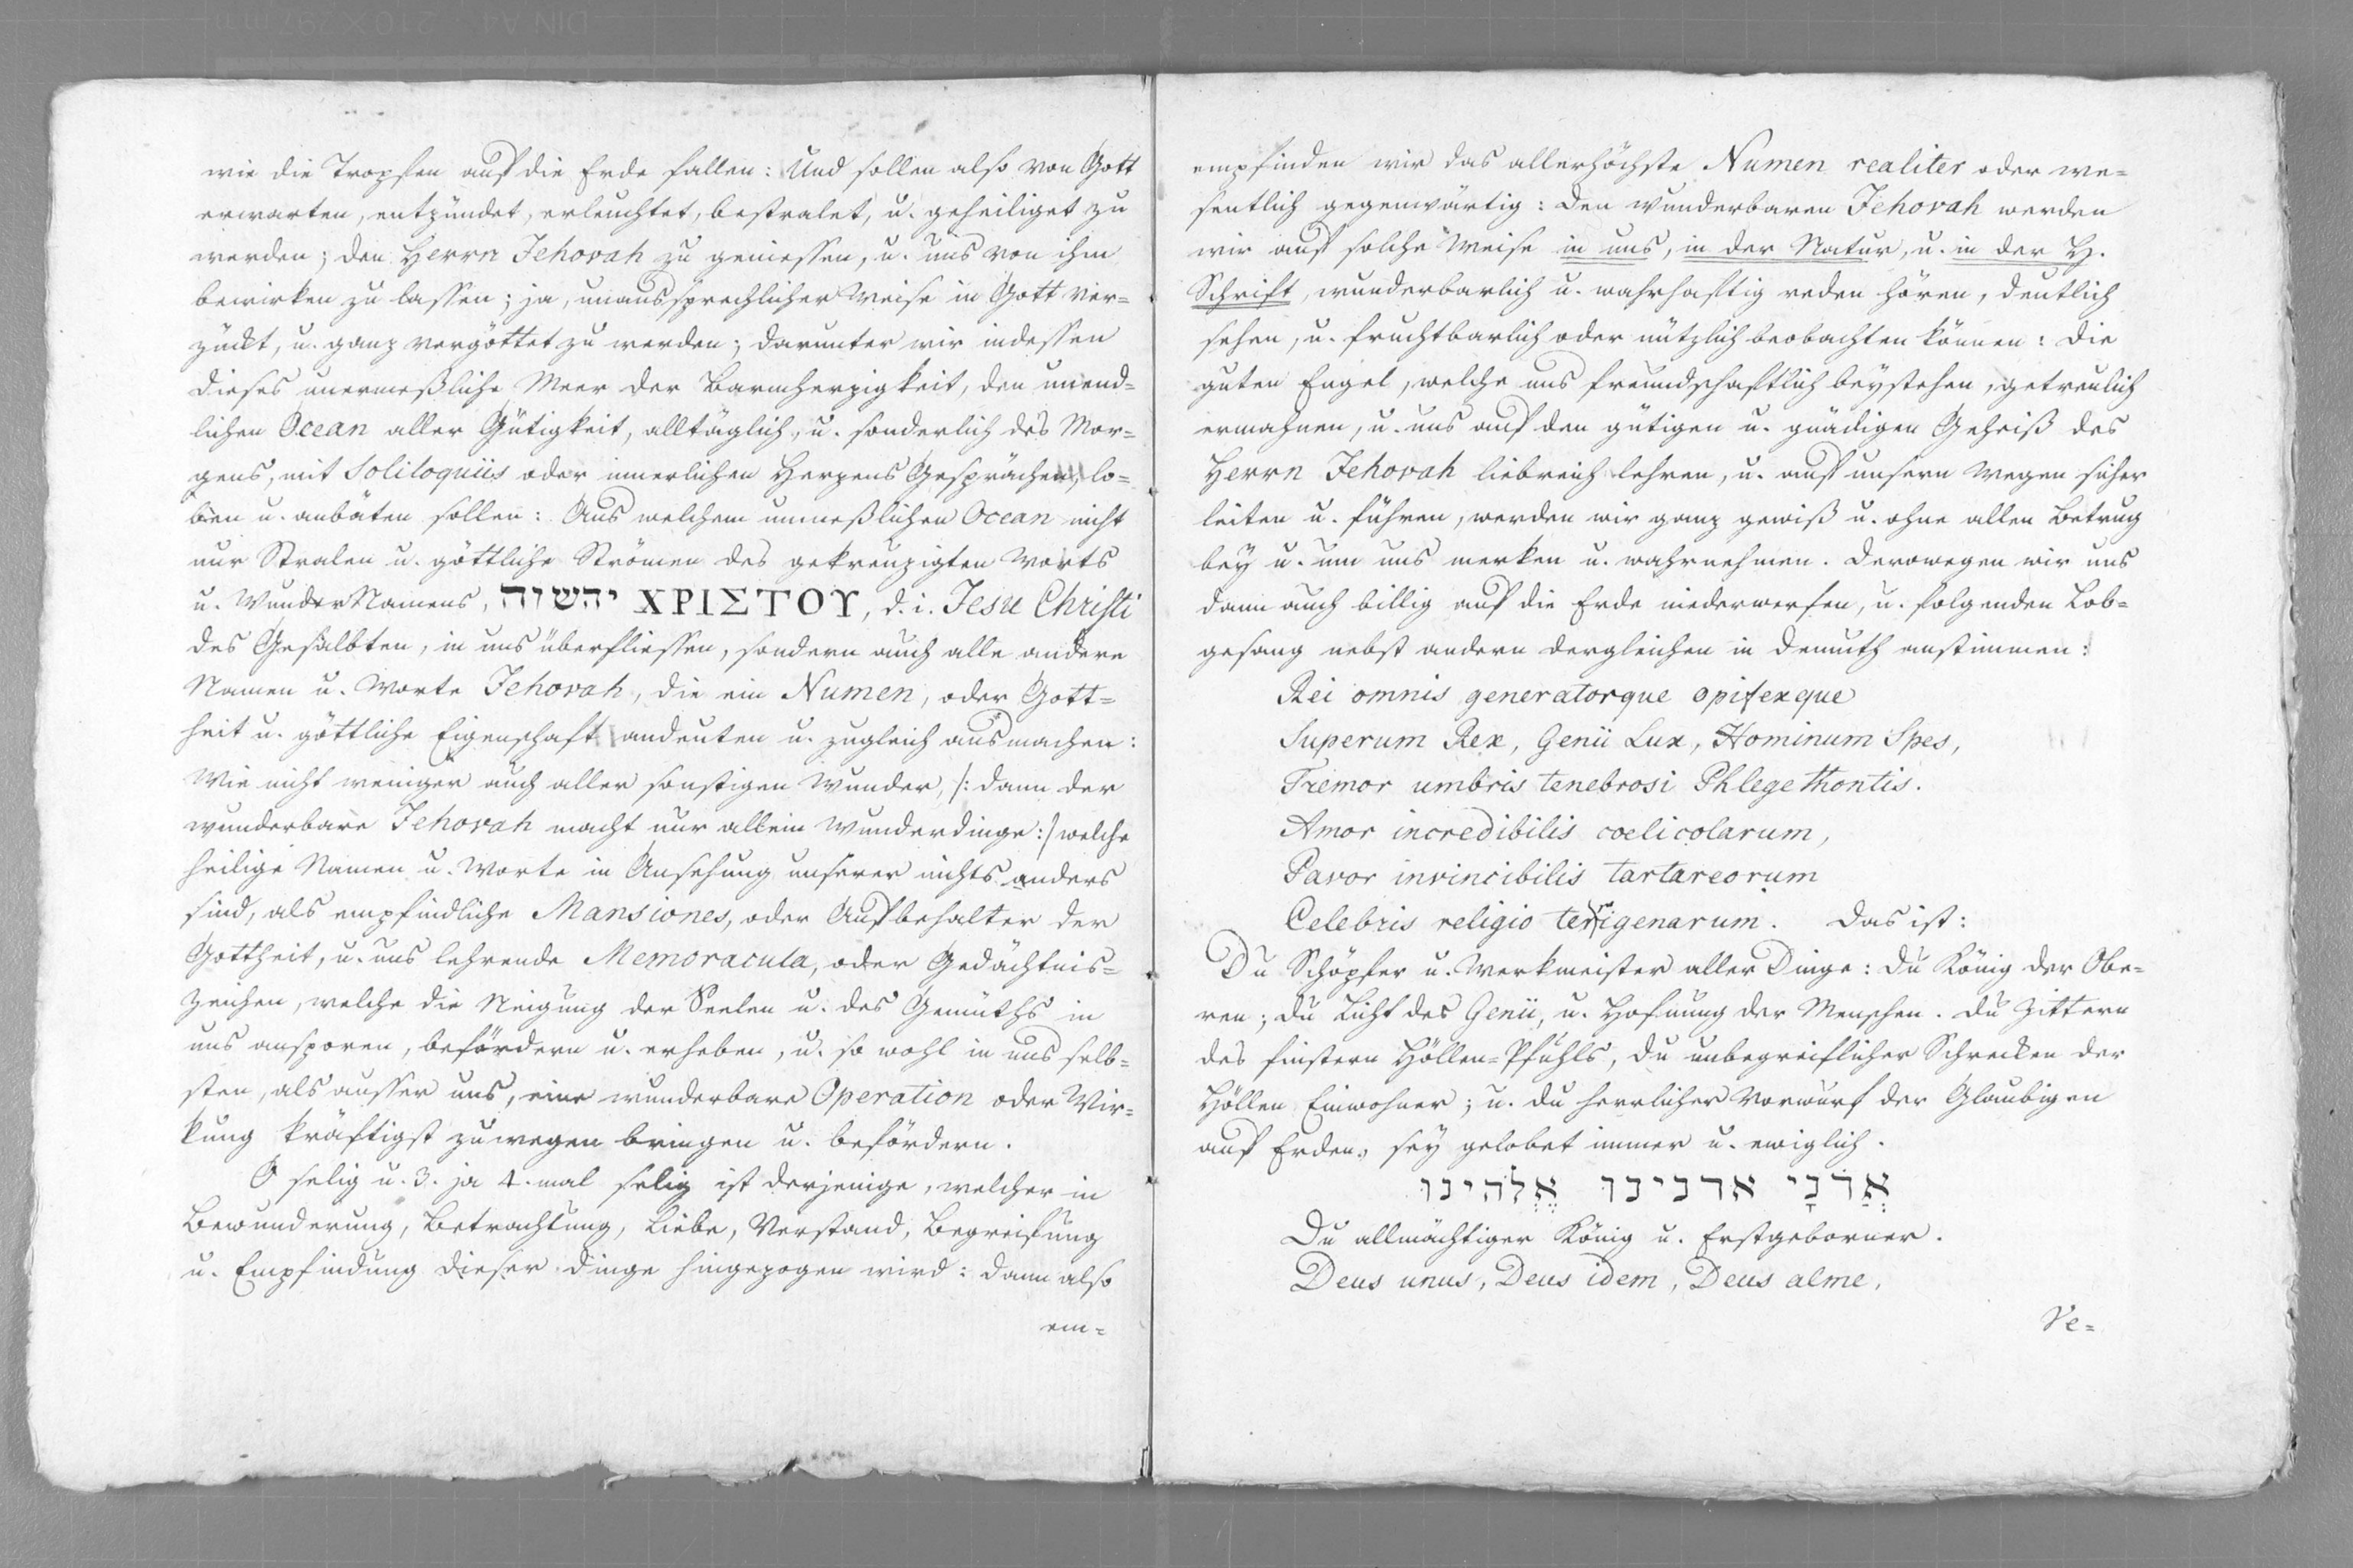 wie die Tropfen auf die Erde fallen: Und sollen also von Gott
erwarten, entzündet, erleuchtet, bestralet, u. geheiliget zu
werden; den Herrn Jehovah zu geniessen, u. uns von ihm
bewirken zu lassen; ja, unaussprechlicher Weise in Gott ver=
zückt, u. ganz vergöttet zu werden; darunter wir indessen
dieses unermeßliche Meer der Barmherzigkeit, den unend=
lichen Ocean aller Gütigkeit, alltäglich, u. sonderlich des Mor=
gens, mit Soliloquiis oder innerlichen Herzens Gesprächen, lo=
ben u. anbäten sollen: Aus welchem unmeßlichen Ocean nicht
nur Stralen u. göttliche Strömen des gekreuzigten Worts
u. WunderNamens, יהשוה ΧΡΙΣΤΟΥ, d. i. Jesu Christi
des Gesalbten, in uns überfliessen, sondern auch alle andere
Namen u. Worte Jehovah, die ein Numen, oder Gott=
heit u. göttliche Eigenschaft andeuten u. zugleich ausmachen:
Wie nicht weniger auch aller sonstigen Wunder, /: dann der
wunderbare Jehovah macht nur allein Wunderdinge :/ welche
heilige Namen u. Worte in Ansehung unserer nichts anders
sind, als empfindliche Mansiones, oder Aufbehalter der
Gottheit, u. uns lehrende Memoracula, oder Gedächtnis=
zeichen, welche die Neigung der Seelen u. des Gemüths in
uns ansporen, befördern u. erheben, u. so wohl in uns selb=
sten, als ausser uns, eine wunderbare Operation oder Wir=
kung kräftigst zuwegen bringen u. befördern.
O selig u. 3. ja 4. mal selig ist derjenige, welcher in
Bewunderung, Betrachtung, Liebe, Verstand, Begreifung
u. Empfindung dieser Dinge hingezogen wird: dann also
em=
empfinden wir das allerhöchste Numen realiter oder we=
sentlich gegenwärtig: den wunderbaren Jehovah werden
wir auf solche Weise in uns, in der Natur, u. in der H.
Schrift, wunderbarlich u. wahrhaftig reden hören, deutlich
sehen, u. fruchtbarlich oder nützlich beobachten können: Die
guten Engel, welche uns freundschaftlich beystehen, getreulich
ermahnen, u. uns auf den gütigen u. gnädigen Geheiß des
Herrn Jehovah liebreich lehren, u. auf unsern Wegen sicher
leiten u. führen, werden wir ganz gewiß u. ohne allen Betrug
bey u. um uns merken u. wahrnehmen. Derowegen wir uns
dann auch billig auf die Erde niederwerfen, u. folgenden Lob=
gesang nebst andern dergleichen in Demuth anstimmen:
Rei omnis generatorque opifexque
Superum Rex, Genii Lux, Hominum Spes,
Tremor umbris tenebrosi Phlegethontis.
Amor incredibilis coelicolarum,
Pavor invincibilis tartareorum
Celebris religio terrigenarum. Das ist:
Du Schöpfer u. Werkmeister aller Dinge: du König der Obe=
ren; du Licht des Genii, u. Hofnung der Menschen. du Zittern
des finstern Höllen=Pfuhls, du unbegreiflicher Schrecken der
Höllen Einwohner; u. du herrlicher Vorwurf der Glaubigen
auf Erden, sey gelobet immer u. ewiglich.
אֲדֹנָי אדנינו אֱלֹהינוּ
Du allmächtiger König u. Erstgeborner.
Deus unus, Deus idem, Deus alme,
Ve=